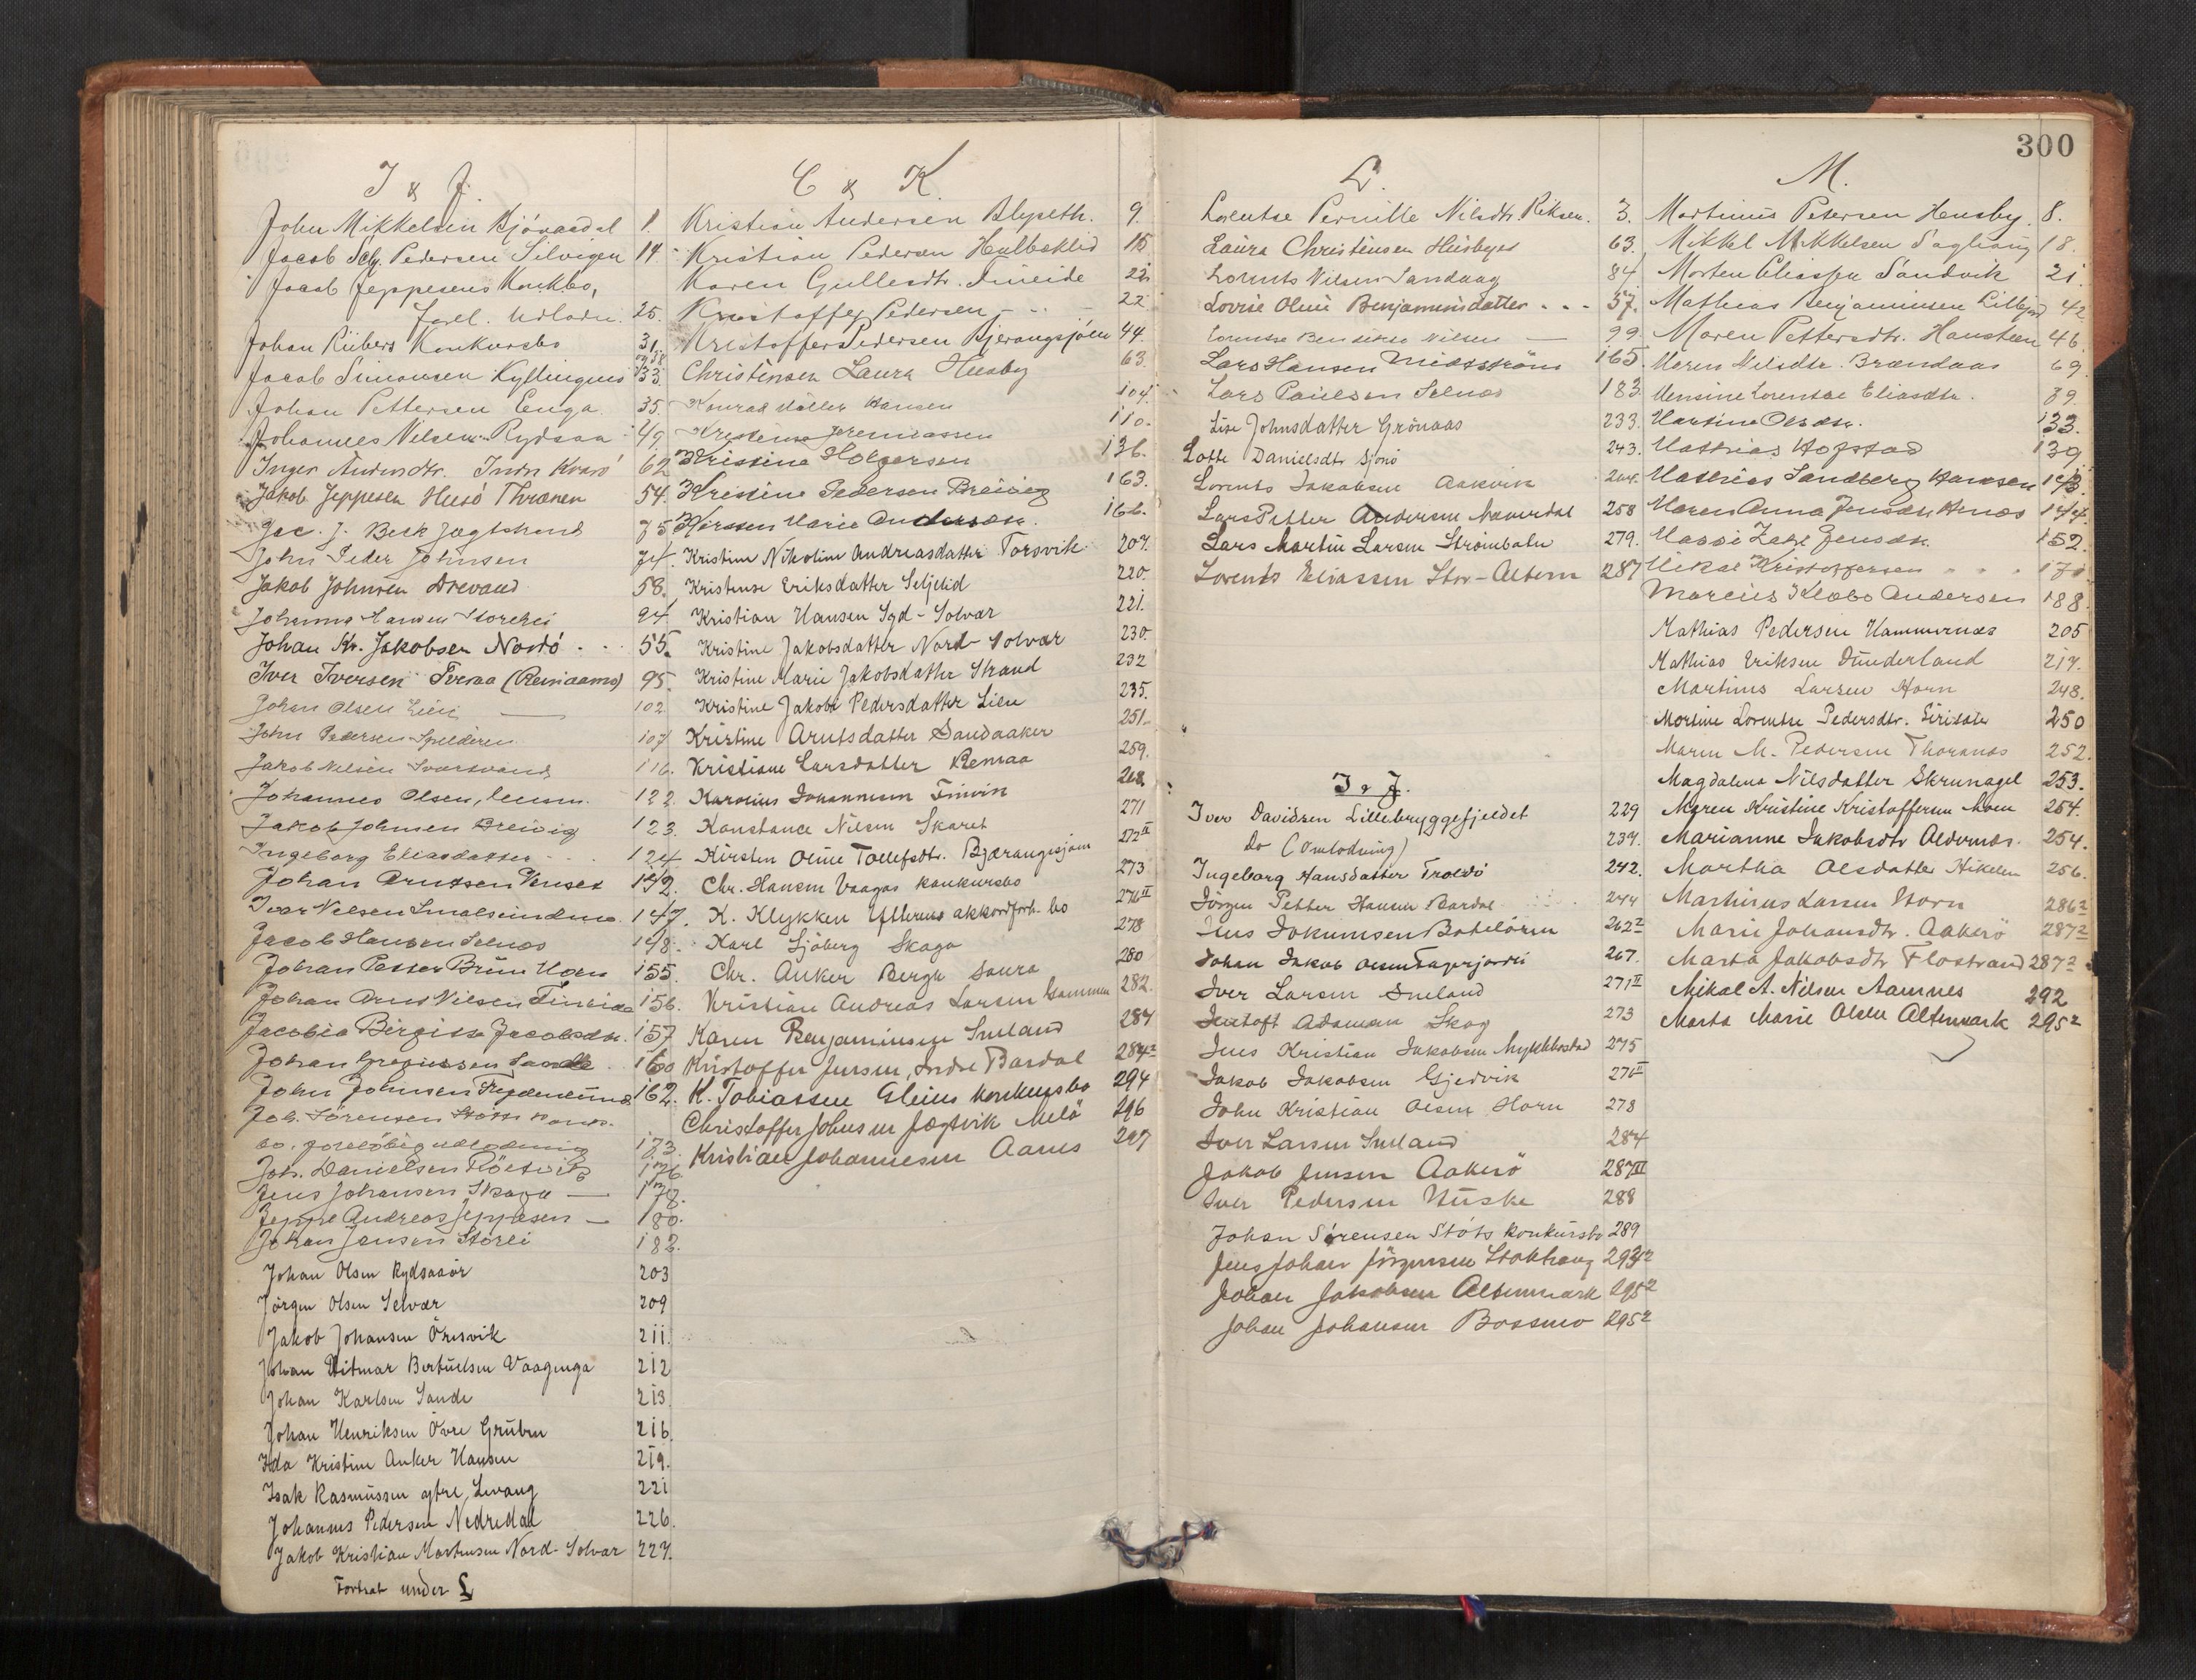 I & J.
John Mikkelsen Kjönaasdal 1.
Jacob Sely. Pedersen Selvigen 14
Jacob Jeppesens Konkbo,
forel. Udlodn. 25.
Johan Rübers Konkursbo 31.
Jacob Simonsen Kyllingmo 33.
Johan Pettersen Enga 35.
Johannes Nilsen Rydsaa 49
Inger Andersdtr. Indr. Kvarö 62
Jakob Jeppesen Husö Thrænen 54.
Jac. J. Beck Jægtskund 75
John Peder Johnsen 74.
Jakob Johnsen Drevand 58.
Johanna Hansen Storelii 94
Johan Kr. Jakobsen Nordö 55.
Iver Iversen Tveraa (Reinaamo) 95.
Johan Olsen Lien 102
John Pedersen Spelderen 107
Jakob Nilsen Svartvand 116.
Johannes Olsen, 122
Jakob Johnsen Breivig 123.
Ingeborg Eliasdatter 124
Johan Arntsen Venset 142.
Ivar Nilsen Smalsundmo 147.
Jacob Hansen Selnæs 148.
Johan Petter Brun Moen 155.
Johan Arnt Nilsen Fineide 156.
Jacobia Birgitte Jacobsdtr. 157
Johan Gregussen Sande 160
John Johnsen 162.
Joh. Sörensen Støtts konk.
bo. foreløbig udlodning 173.
Joh. Danielsen Röstvik 176
Jens Johansen Skaga 178.
Jeppe Andreas Jeppesen 180.
Johan Jensen Storli 182.
Johan Olsen Rydsaaör 203
Jörgen Olsen Selvær 209
Jakob Johansen Öresvik 211.
Johan Hitmar Bertüelsen Vaagenga 212
Johan Karlsen Sande 213
Johan Henriksen Övre Gruben 216
Ida Kristine Anker Hansen 219.
Isak Rasmussen ytre Levang 221
Johannes Pedersen Nedredal 226.
Jakob Kristian Mortensen Nord-Solvær 227.
Fortsat under L
C & K
Kristian Andersen Alyseth. 9.
Kristian Pedersen Hulbeklid 15
Karen Gullesdtr. Fineide 22
Kristoffer Pedersen 22
Kristoffer Pedersen Bjerangsjöen 44.
Christensen Laura Husby 63.
Konrad Möller Hansen 104.
Kristense Jeremiassen 110.
Kristine Holgersen 136.
Kristine Pedersen Breivig 163.
Kirsten Marie Andersdtr. 166.
Kristine Nikoline Andreasdatter Torsvik 207.
Kristense Eriksdatter Seljelid 220.
Kristian Hansen Syd-Solvær 221.
Kristine Jakobsdatter Nord-Solvær 230.
Kristine Marie Jakobsdatter Strand 232
Kristine Jakobe Pedersdatter Lien 235.
Kristine Arntsdatter Sandaaker 251
Kristiane Larsdatter Remaa 259.
Karolius Johannesen Finvik 268.
Konstance Nilsen Skaret 271
Kirsten Oline Tollefsdtr. Bjærangsjøen 272 II
Chr. Hansen Vaagas konkursbo 273
K. Klykken Ytterens akkordforh. bo 276 II
Karl Sjöberg Skaga 278
Chr. Anker Bergh Saura 280
Kristian Andreas Larsen 282.
Karen Benjaminsen Smland 284
Kristoffer Jensen, Indre Bardal 284 2
K. Tobiassen Glein konkursbo 294
Christoffer Johnsen Jægtvik Melö 296
Kristian Johannesen Aanes 297
L.
Lorentse Pernille Nilsdtr. Riksen. 3.
Laura Christensen Husbyes 63.
Lorents Nilsen Sandaag 84
Lovise Oline Benjaminsdatter 57.
Lorentse Bendikte Nilsen 99
Lars Hansen Midtström 165.
Lars Paulsen Selnæs 183.
Lise Johnsdatter Grönaas 233.
Lotte Danielsdtr Sjonö 243.
Lorents Jakobsen Aakvik 244.
Lars Petter Andersen Næverdal 258
Lars Martin Larsen Strömbotn 279.
Lorents Eliassen Stor-Altern 287
I & J.
Iver Davidsen Lillebryggefjeldet 229
Do (omlodning) 239.
Ingeborg Hansdatter Troldö 242.
Jörgen Petter Hansen Bardal 244
Jens Jokumsen Botelören 262 2
Johan Jakob Olsen Fagerjorden 267.
Iver Larsen Smeland 271 II
Justoft Adamsen Skog 273
Jens Kristian Jakobsen Myklebostad 275
Jakob Jakobsen Gjervik 276 II
John Kristian Olsen Horn 278
Iver Larsen Smeland 284
Jakob Jensen Aakerö 287 III
Iver Pedersen Huske 288
Johan Sörensen Stöts konkursbo 289
Jens Johan Jörgensen Stokkvaag 293 2
Johan Jakobsen Altermark 295 2
Johan Johansen Bossmo 295 2
300
M.
Martinus Petersen Heusby 8.
Mikkel Mikkelsen Saghaug 18.
Morten Eliassen Sandvik 21
Mathias Benjaminsen Lillefjord 42
Maren Pettersdtr. Hansteen 46.
Maren Nilsdtr. Brændaas 69
Mensine Lorentse Eliasdtr. 89
Martine Olsdtr. 133.
Mathias Hofstad 139
Mathias Sandberg Hansen 143.
Maren Anna Jensdtr Henæs 144.
Massi Zahl Jensdtr. 152
Mikal Kristoffersen 170
Marcus Klæbo Andersen 188
Mathias Pedersen Hammernæs 205
Mathias Eriksen Dunderland 217.
Martinus Larsen Horn 248.
Martine Lorentse Pedersdtr. 250
Maren M. Pedersen Thoranæs 252.
Magdalena Nilsdatter Skrunagel 253.
Maren Kristine Kristoffersen Moen 254.
Marianne Jakobsdtr Aldernæs. 254.
Martha Olsdatter Hikelen 256.
Martinus Larsen Horn 286 2
Marie Johansdtr. Aakerö 287 2
Marta Jakobsdtr Flostrand 287 2
Mikal A. Nilsen Aamnes 292
Marta Marie Olsen Altermark 295 2